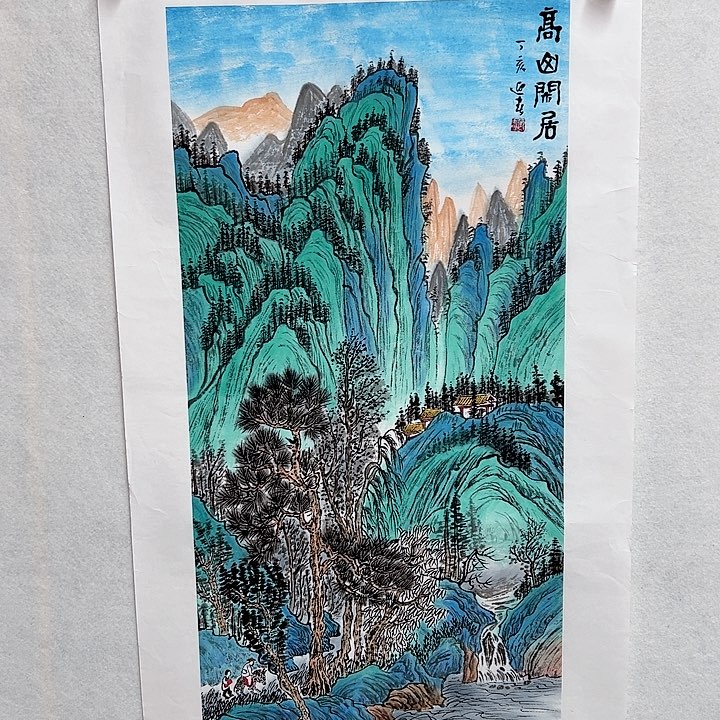 高山閑居
丁亥